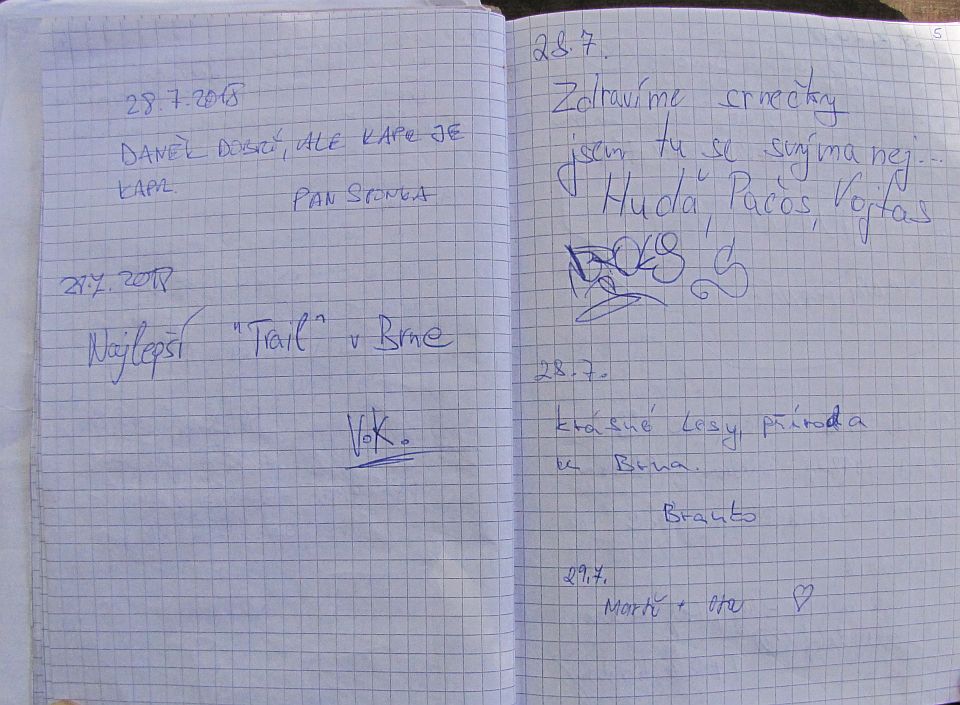 28.7.2018
DANĚK DOBRÝ, ALE KAPR JE
KAPR.
PAN SPONKA
28.7.2018
Najlepší "Trail" v Brne
V.K.
5
28.7.
Zdravíme srnečky
jsem tu se svýma nej...
Huďa, Pačos, Vojtas
28.7.
krásné lesy, příroda
u Brna.
Branko
29.7.
+ Ota ♡